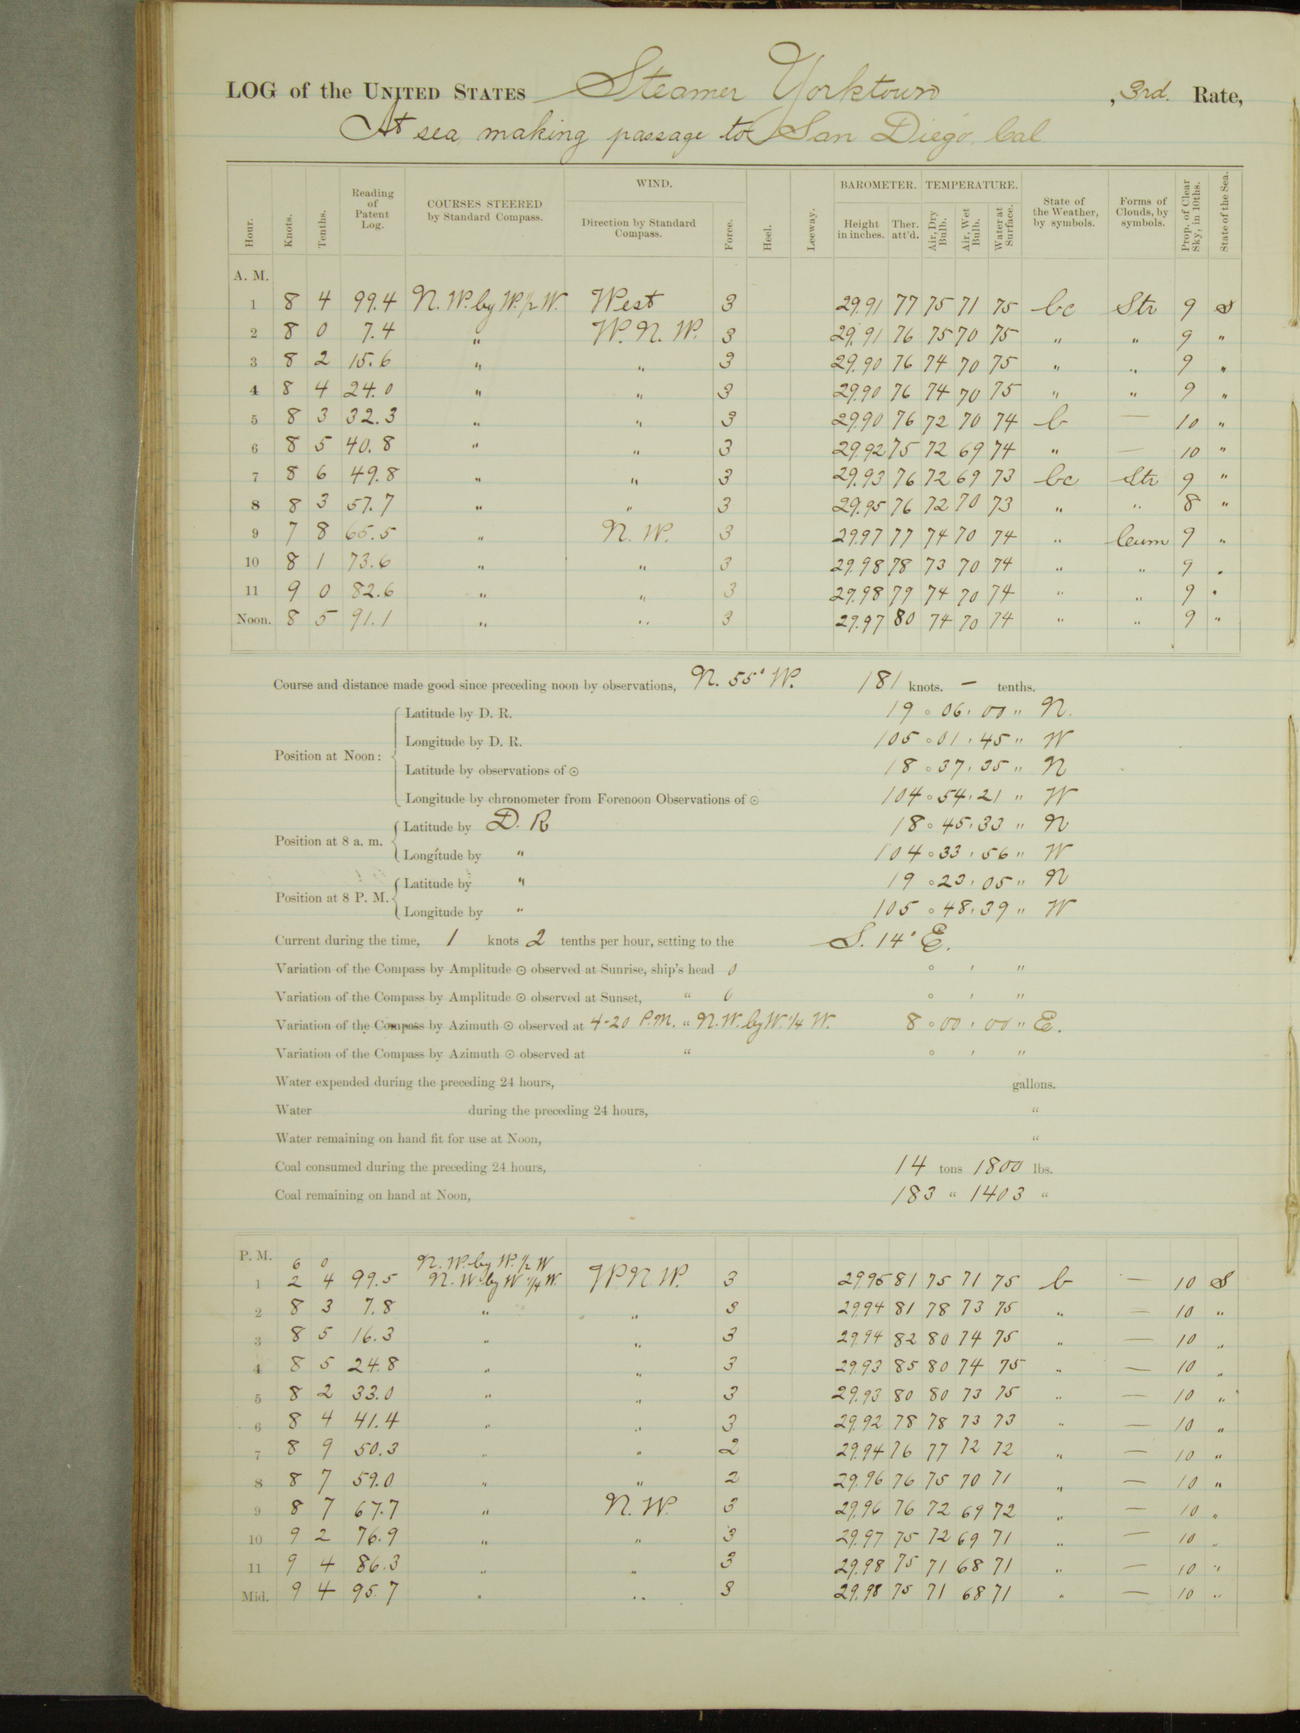 LOG of the UNITED STATES Steamer Yorktown, 3rd. Rate,
At sea making passage to San Diego, Cal.
Hour. Knots. Tenths. Reading of Patent Log. COURSES STEERED by Standard Compass. WIND. Direction by Standard Compass. Force. Heel. Leeway. BAROMETER. Height in inches. Ther. att'd. TEMPERATURE. Air, Dry Bulb. Air, Wet Bulb. Water at Surface. State of the Weather, by symbols. Forms of Clouds, by symbols. Prop. of Clear Sky, in 10ths. State of the Sea.
A. M.
1 8 4 99.4 N. W. by W. 1/2 W. West 3 29.91 77 75 71 75 bc Str 9 S
2 8 0 7.4 " W. N. W. 3 29.91 76 75 70 75 " " 9 "
3 8 2 15.6 " " 3 29.90 76 74 70 75 " " 9 "
4 8 4 24.0 " " 3 29.90 76 74 70 75 " " 9 "
5 8 3 32.3 " " 3 29.90 76 72 70 74 b — 10 "
6 8 5 40.8 " " 3 29.92 75 72 69 74 " — 10 "
7 8 6 49.8 " " 3 29.93 76 72 69 73 bc Str 9 "
8 8 3 57.7 " " 3 29.95 76 72 70 73 " " 8 "
9 7 8 65.5 " N. W. 3 29.97 77 74 70 74 " Cum 9 "
10 8 1 73.6 " " 3 29.98 78 73 70 74 " " 9 "
11 9 0 82.6 " " 3 29.98 79 74 70 74 " " 9 "
Noon. 8 5 91.1 " " 3 29.97 80 74 70 74 " " 9 "
Course and distance made good since preceding noon by observations, N. 55° W. 181 knots. — tenths.
Position at Noon: Latitude by D. R. 19 ° 06 ' 00 " N.
Longitude by D. R. 105 ° 01 ' 45 " W
Latitude by observations of ⊙ 18 ° 37 ' 35 " N
Longitude by chronometer from Forenoon Observations of ⊙ 104 ° 54 ' 21 " W
Position at 8 a. m. Latitude by D. R 18 ° 45 ' 33 " N
Longitude by " 104 ° 33 ' 56 " W
Position at 8 P. M. Latitude by " 19 ° 23 ' 05 " N
Longitude by " 105 ° 48 ' 39 " W
Current during the time, 1 knots 2 tenths per hour, setting to the S. 14° E.
Variation of the Compass by Amplitude ⊙ observed at Sunrise, ship's head 0 ° ' "
Variation of the Compass by Amplitude ⊙ observed at Sunset, " 0 ° ' "
Variation of the Compass by Azimuth ⊙ observed at 4-20 P.M. " N. W. by W. 1/4 W. 8 ° 00 ' 00 " E.
Variation of the Compass by Azimuth ⊙ observed at " ° ' "
Water expended during the preceding 24 hours, gallons.
Water during the preceding 24 hours, "
Water remaining on hand fit for use at Noon, "
Coal consumed during the preceding 24 hours, 14 tons 1800 lbs.
Coal remaining on hand at Noon, 183 " 1403 "
P. M. 6 0 N. W. by W. 1/2 W
1 2 4 99.5 N. W. by W 1/4 W. W. N. W. 3 29.95 81 75 71 75 b — 10 S
2 8 3 7.8 " " 3 29.94 81 78 73 75 " — 10 "
3 8 5 16.3 " " 3 29.94 82 80 74 75 " — 10 "
4 8 5 24.8 " " 3 29.93 85 80 74 75 " — 10 "
5 8 2 33.0 " " 3 29.93 80 80 73 75 " — 10 "
6 8 4 41.4 " " 3 29.92 78 78 73 73 " — 10 "
7 8 9 50.3 " " 2 29.94 76 77 72 72 " — 10 "
8 8 7 59.0 " " 2 29.96 76 75 70 71 " — 10 "
9 8 7 67.7 " N. W. 3 29.96 76 72 69 72 " — 10 "
10 9 2 76.9 " " 3 29.97 75 72 69 71 " — 10 "
11 9 4 86.3 " " 3 29.98 75 71 68 71 " — 10 "
Mid. 9 4 95.7 " " 3 29.98 75 71 68 71 " — 10 "